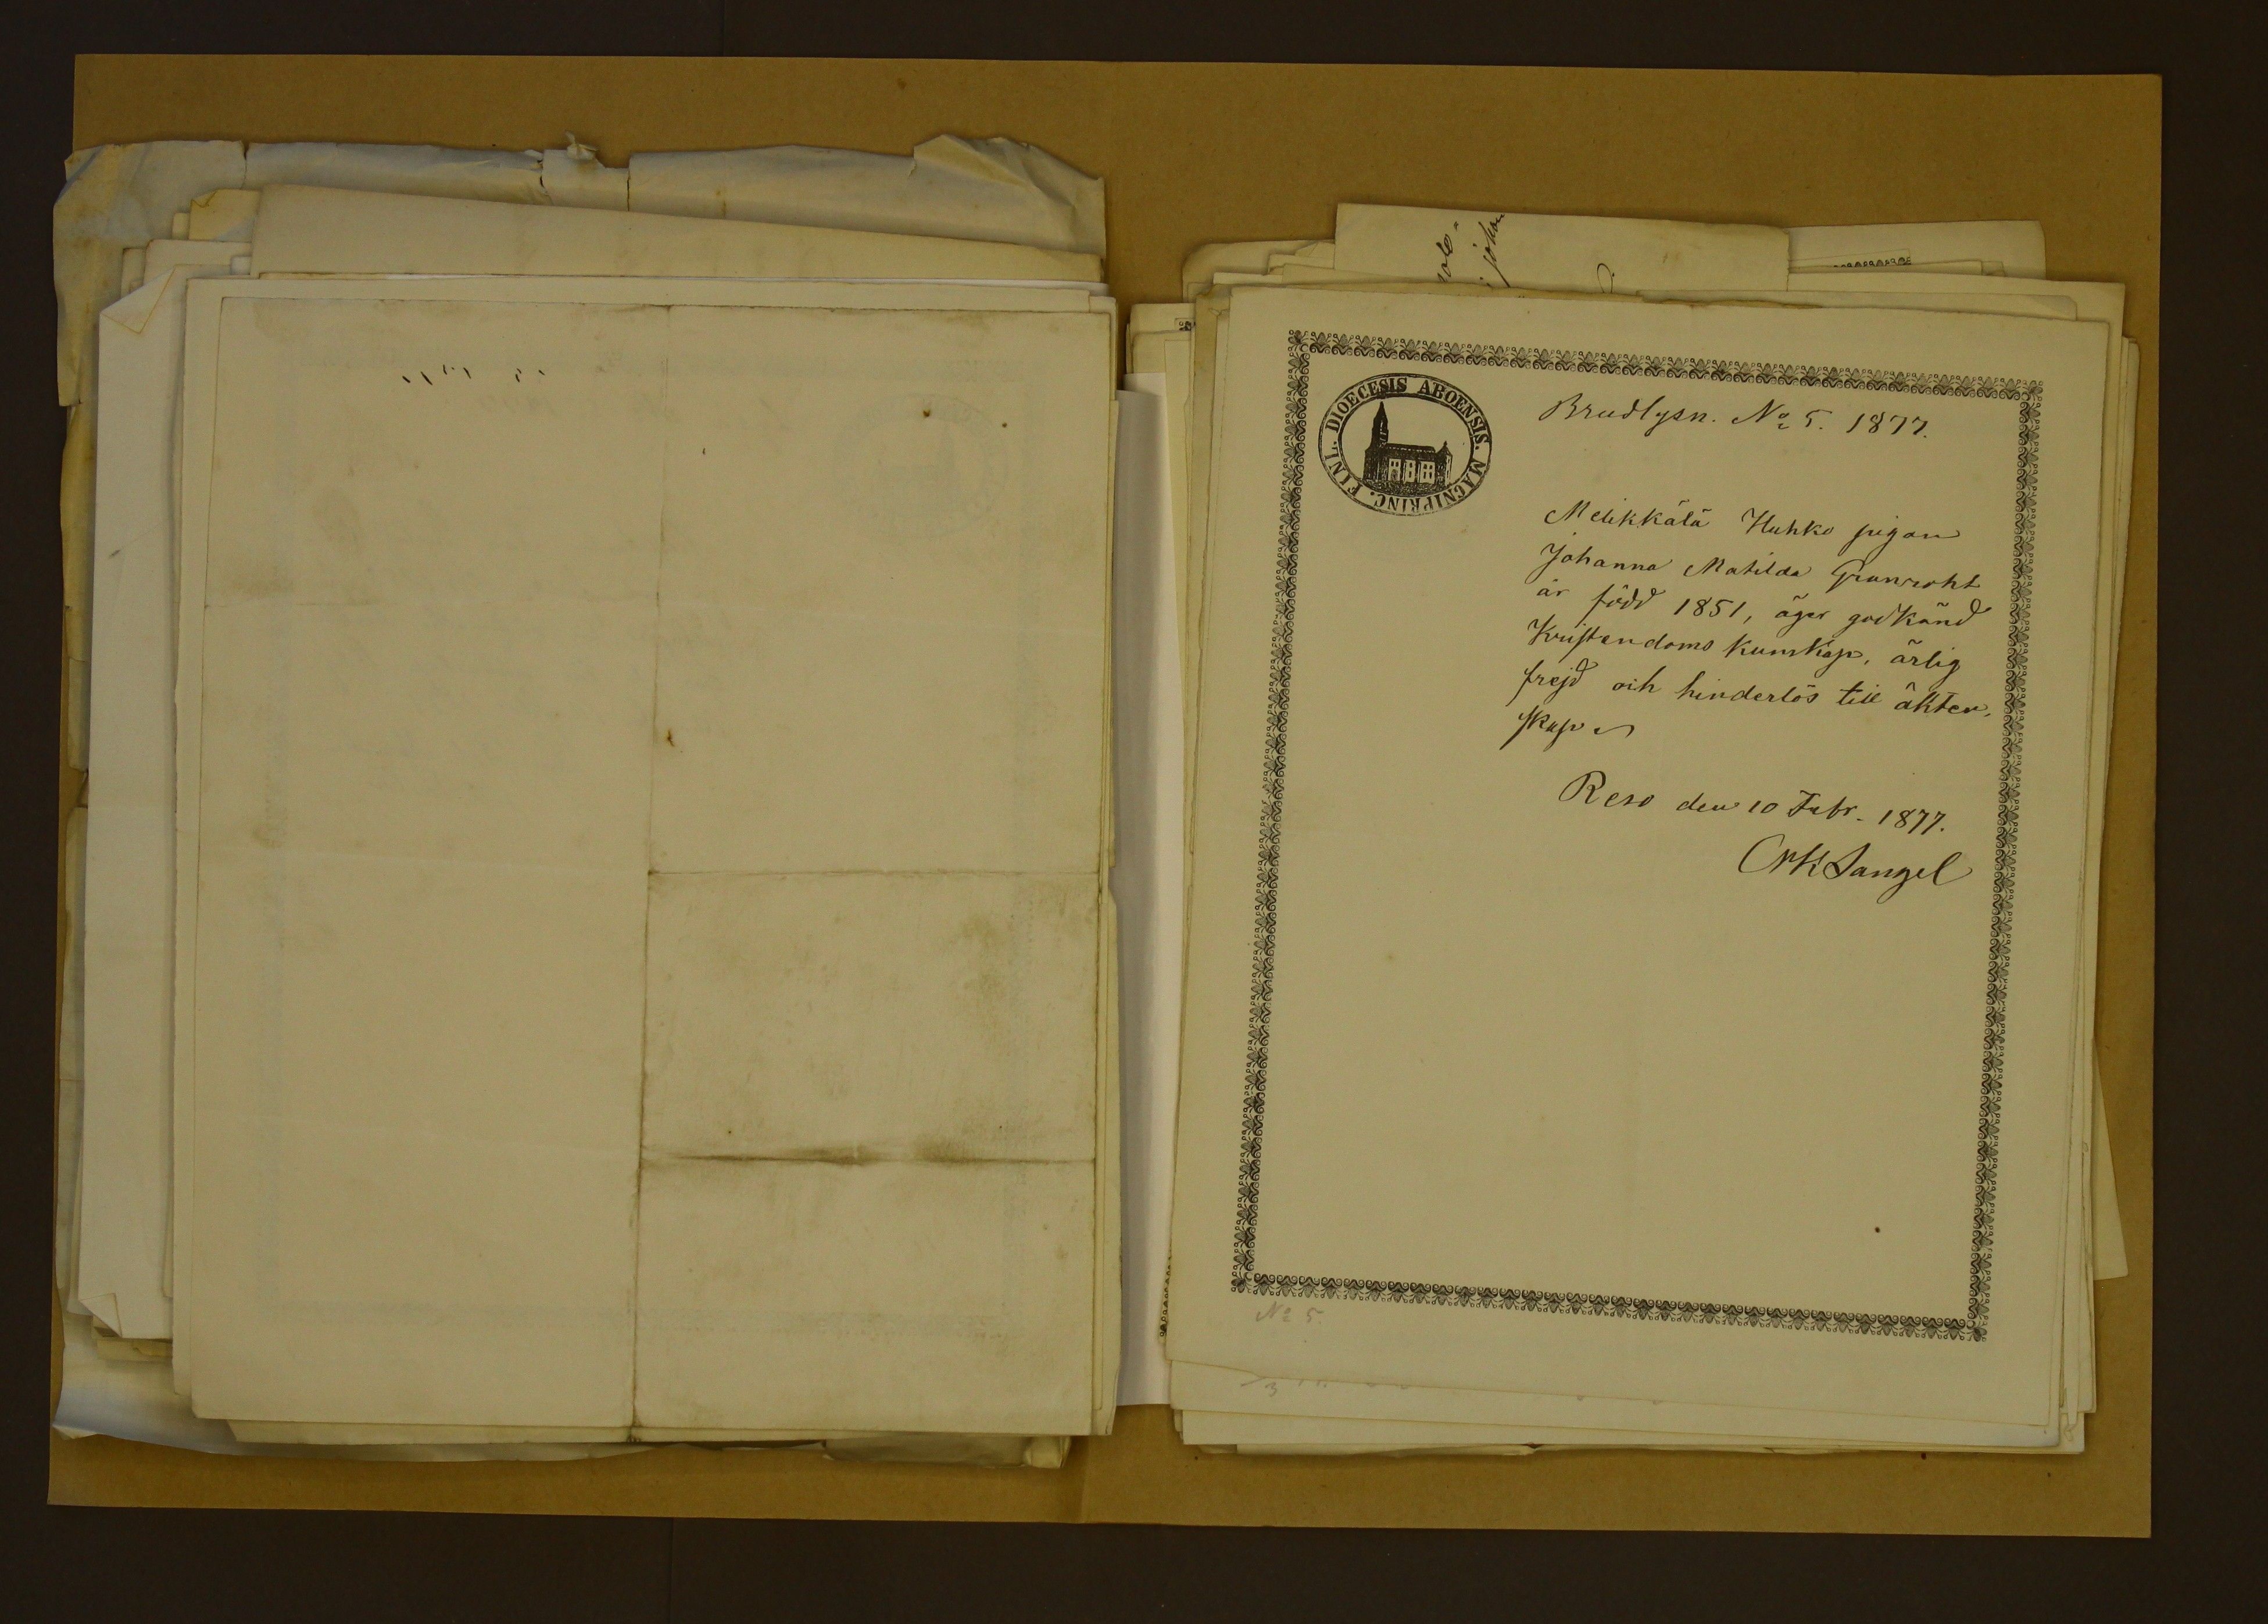 DIOECESIS ABOENSIS. MAGNIPRINC. FINL.
Brudlysn. No 5. 1877.
Melikkälä Huhko pigan
Johanna Matilda Granroht
är född 1851, äger godkänd
Kristendoms kunskap, ärlig
frejd och hinderlös till äkten-
skap
Reso den 10 Febr. 1877.
No 5